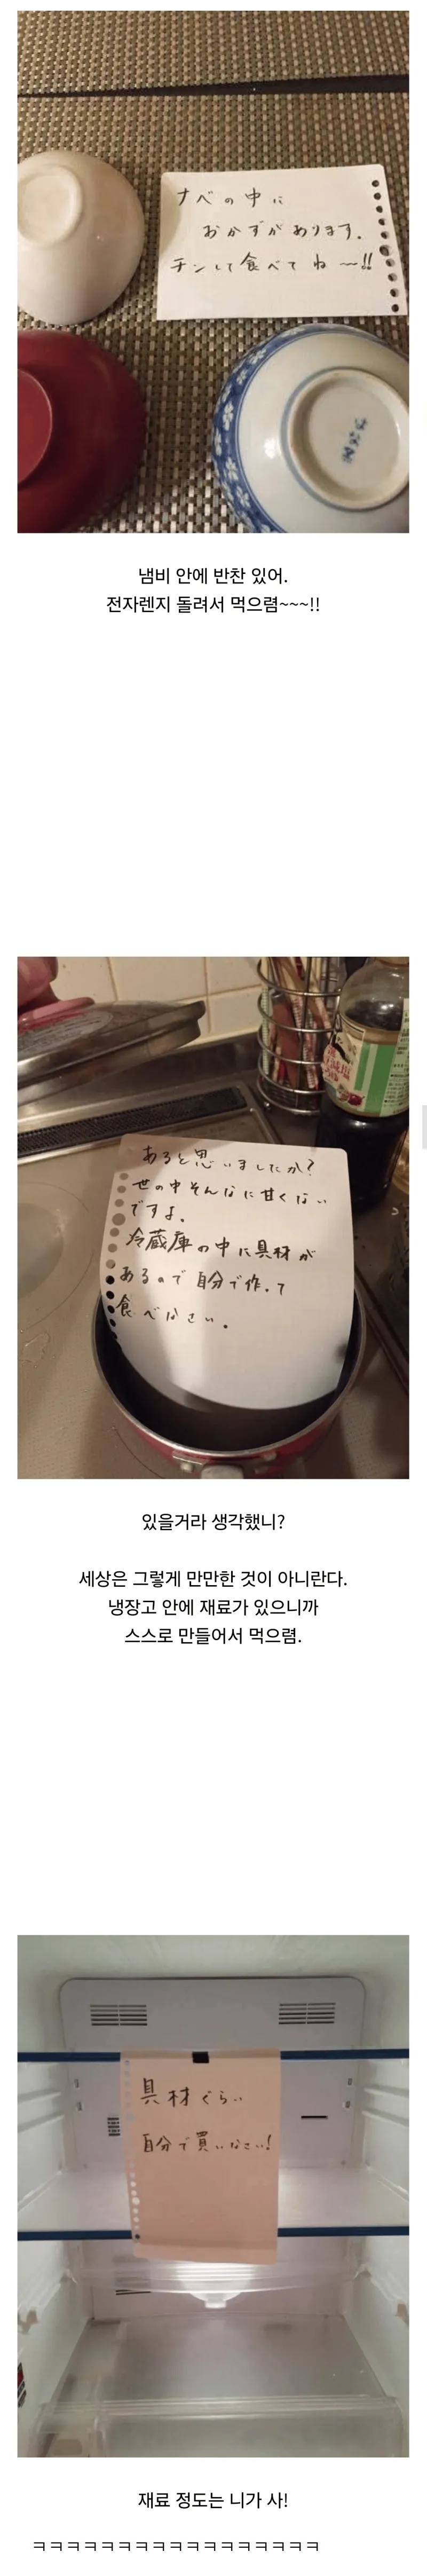 ナベの中に
おかずがあります。
チンして食べてね〜!!
냄비 안에 반찬 있어.
전자렌지 돌려서 먹으렴~~~!!
あると思いましたか?
世の中そんなに甘くない
ですよ。
冷蔵庫の中に具材が
あるので自分で作って
食べなさい。
있을거라 생각했니?
세상은 그렇게 만만한 것이 아니란다.
냉장고 안에 재료가 있으니까
스스로 만들어서 먹으렴.
具材ぐらい
自分で買いなさい!
재료 정도는 니가 사!
ㅋㅋㅋㅋㅋㅋㅋㅋㅋㅋㅋㅋㅋㅋㅋㅋㅋ